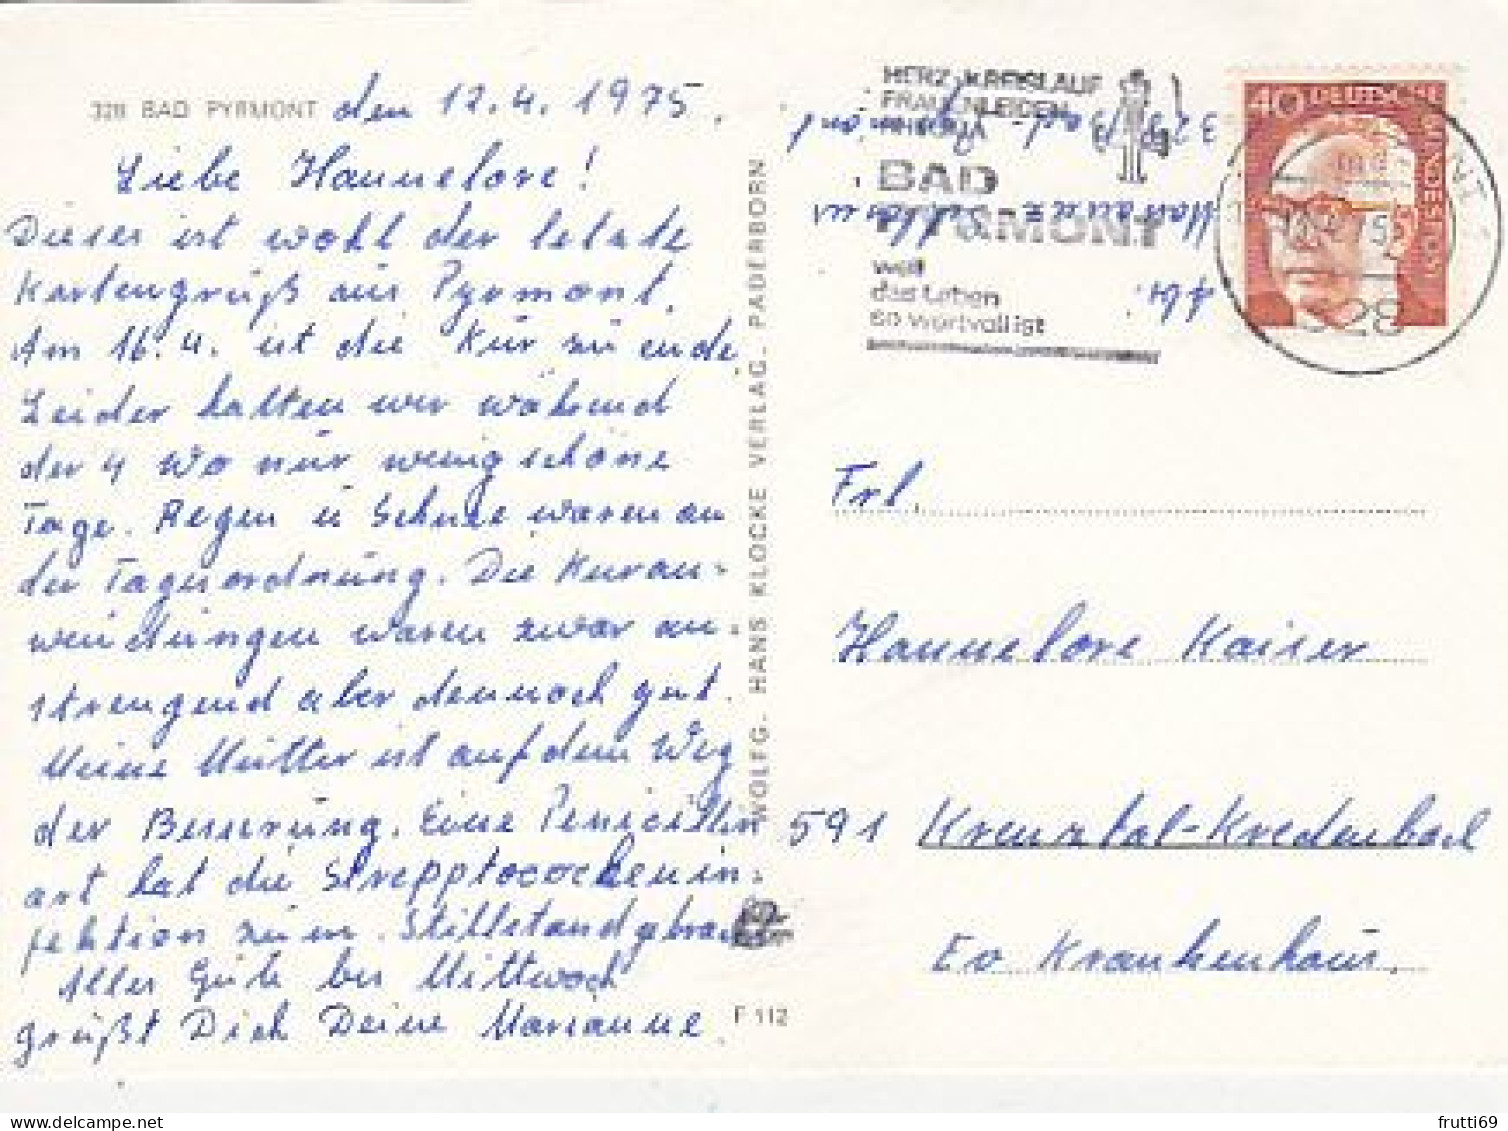 328 BAD PYRMONT den 12.4.1975.
Liebe Hannelore!
Dieses ist wohl der letzte
Kartengruß aus Pyrmont.
Am 16.4. ist die Kur zu ende
Leider hatten wir während
der 4 Wo nur wenig schöne
Tage. Regen u Schnee waren an
der Tagesordnung. Die Kuran-
wendungen waren zwar an-
strengend aber dennoch gut.
Meine Mutter ist auf dem Weg
der Besserung. Eine Penicillin
art hat die Strepptocochenin-
fektion zum Stillstand gebracht
Alles Gute bis Mittwoch
grüßt Dich Deine Marianne.
WOLFG. HANS KLOCKE VERLAG. PADERBORN
F 112
HERZ-KREISLAUF
FRAUENLEIDEN
BAD
PYRMONT
weil
das Leben
so wertvoll ist
328 Bad-Pyrmont
Abs.
40 DEUTSCHE BUNDESPOST
328
Frl.
Hannelore Kaiser
591 Kreuztal-Kredenbach
Ev Krankenhaus.
frutti69